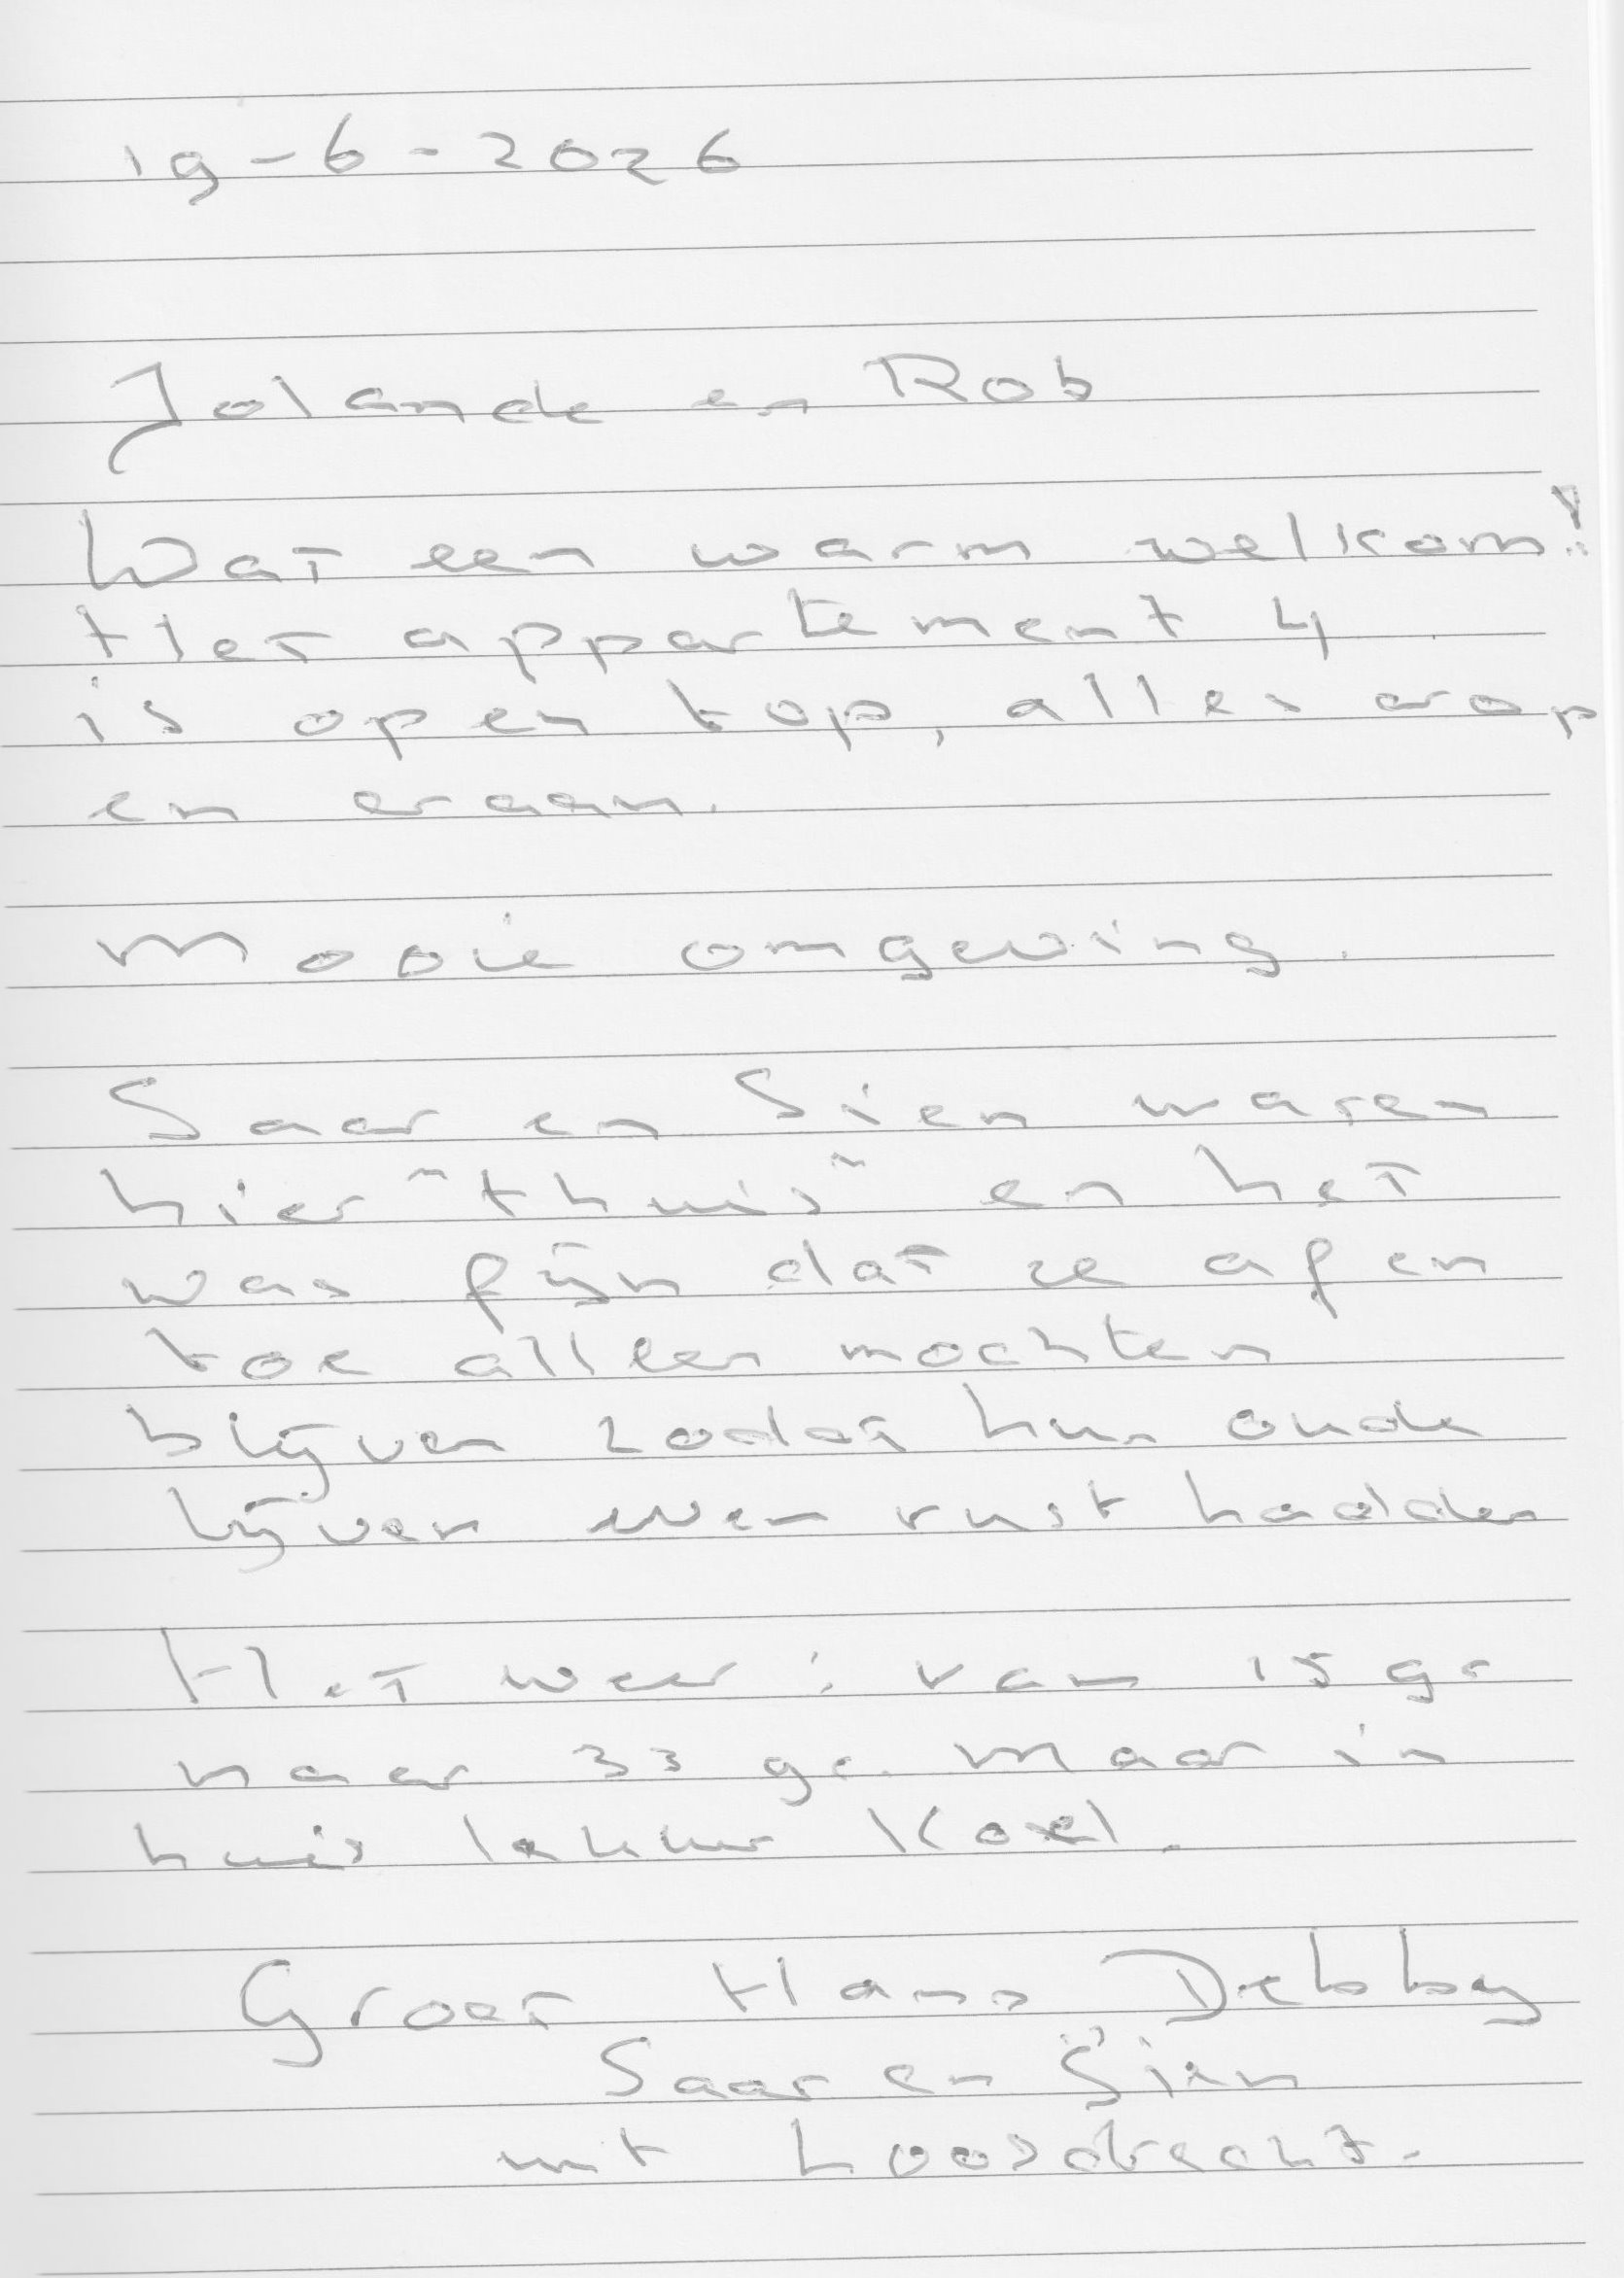 19-6-2026
Jolande en Rob
Wat een warm welkom!
Het appartement 4
is open top, alles erop
en eraan.
Mooie omgeving.
Saar en Sien waren
hier "thuis" en het
was fijn dat ze af en
toe alleen mochten
blijven zodat hun oude
lijven even rust hadden
Het weer: van 15 gr
naar 33 gr. maar in
huis lekker koel.
Groet Hans Debby
Saar en Sien
uit Loosdrecht.